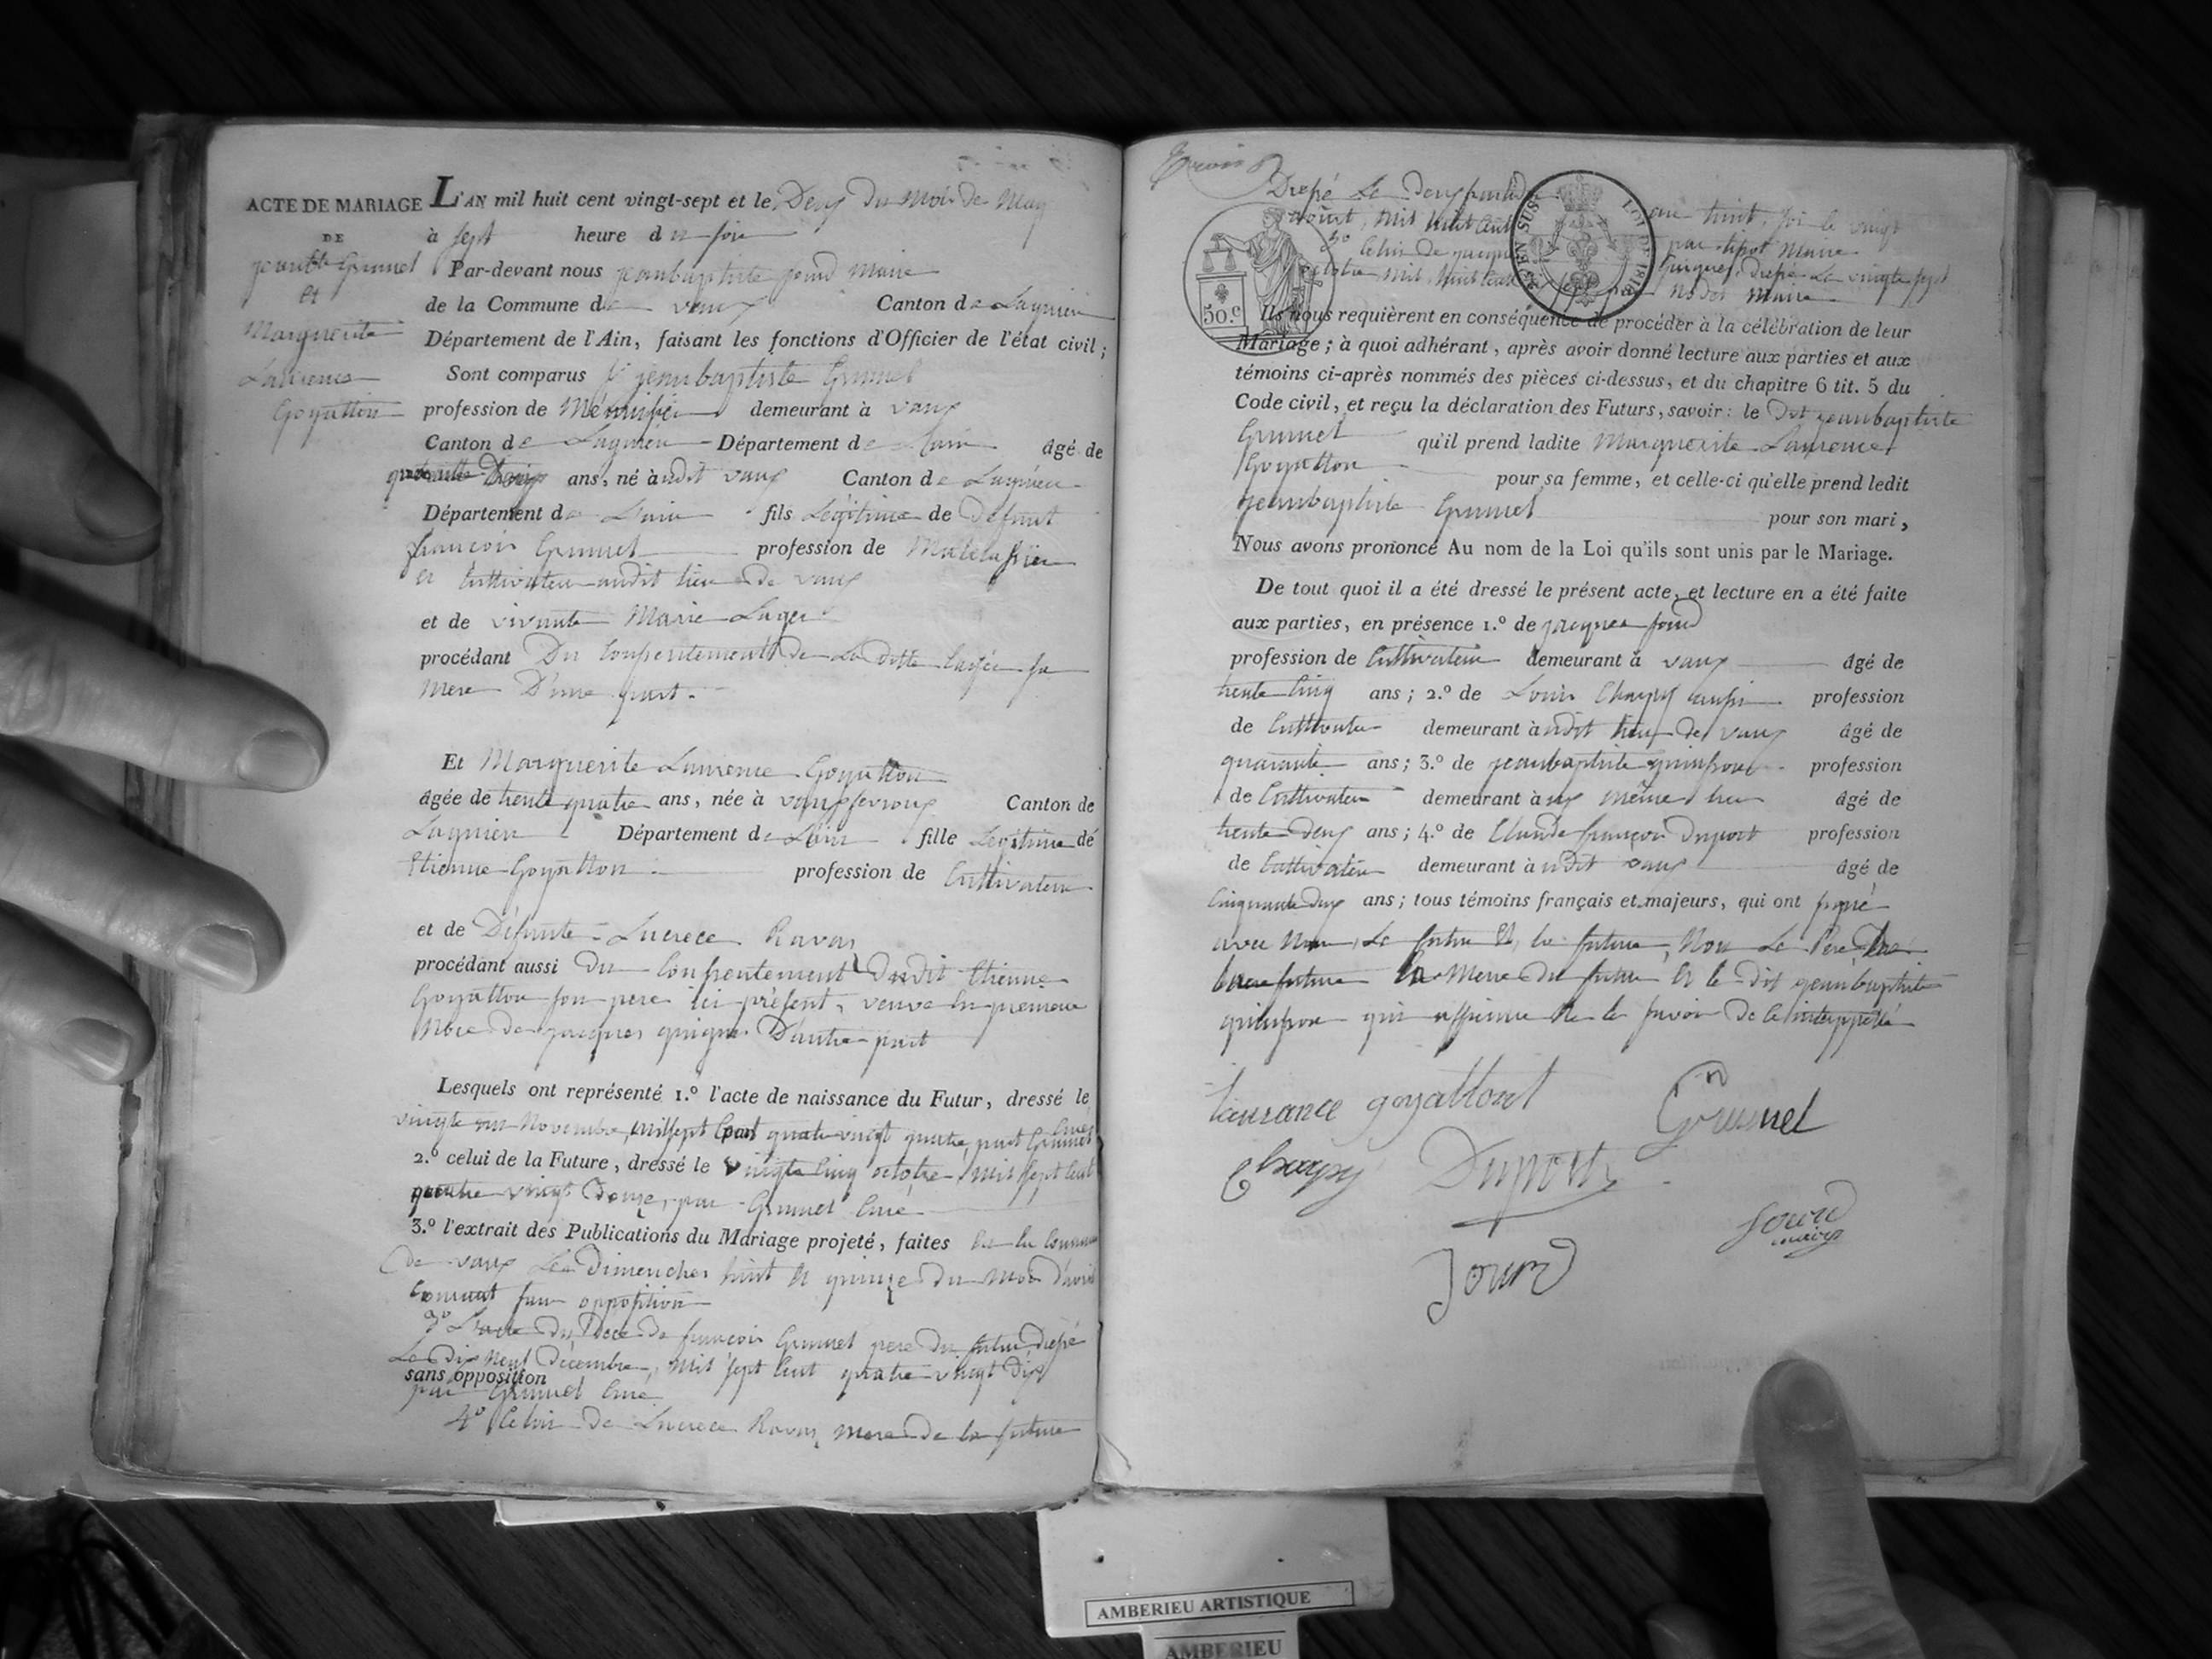 ACTE DE MARIAGE L'AN mil huit cent vingt-sept et le Deux du mois de May
DE
à sept heure du soir
jean bte Grumel
Par-devant nous jeanbaptiste jourd Maire
et
de la Commune de vaux Canton de Lagnieu
Marguerite
Département de l'Ain, faisant les fonctions d'Officier de l'état civil ;
Laurence
Sont comparus jeanbaptiste Grumel
Goyatton
profession de Menuisier demeurant à vaux
Canton de Lagnieu Département de Lain âgé de
ans, né audit vaux Canton de Lagnieu
Département de Lain fils Légitime de Défunt
françois Grumel profession de
et Cultivateur audit lieu de vaux
et de vivante Marie Luger
procédant Du Consentement de La ditte sa
Mere D'une part.
Et Marguerite Laurence Goyatton
âgée de trente quatre ans, née à vaux Canton de
Lagnieu Département de Lain fille Légitime de
Etienne Goyatton profession de Cultivateur
et de Défunte Lucrece Ravas
procédant aussi du Consentement Dudit Etienne
Goyatton son pere ici présent, veuve En premiere
Noce de jacques D'autre part
Lesquels ont représenté 1.º l'acte de naissance du Futur, dressé le
vingt un Novembre, mil sept Cent quatre vingt quatre, par Grumel Curé
2.º celui de la Future, dressé le vingt Cinq octobre mil sept Cent
quatre vingt Douze, par Grumel Curé
3.º l'extrait des Publications du Mariage projeté, faites En la Commune
de vaux Les Dimenches huit et quinze du mois D'avril
Courant sans opposition
3º L'acte Du Décè De françois Grumel pere Du futur Dressé
Le Dix Neuf Décembre, Mil Sept Cent quatre vingt Dix
sans opposition
par Grumel Curé
4º Celui De Lucrece Ravas, Mere De la future
Dressé Le Deux
août, Mil huit Cent
5º Celui de jacques par Maire
octobre Mil huit Cent Dressé Le vingt sept
par Nodet Maire
50.c
EN SUS LOI DE 1816
Ils nous requièrent en conséquence de procéder à la célébration de leur
Mariage ; à quoi adhérant, après avoir donné lecture aux parties et aux
témoins ci-après nommés des pièces ci-dessus, et du chapitre 6 tit. 5 du
Code civil, et reçu la déclaration des Futurs, savoir : le Dit jeanbaptiste
Grumel qu'il prend ladite Marguerite Laurence
Goyatton pour sa femme, et celle-ci qu'elle prend ledit
jeanbaptiste Grumel pour son mari,
Nous avons prononcé Au nom de la Loi qu'ils sont unis par le Mariage.
De tout quoi il a été dressé le présent acte, et lecture en a été faite
aux parties, en présence 1.º de jacques jourd
profession de Cultivateur demeurant à vaux âgé de
trente Cinq ans ; 2.º de Louis Chapuy profession
de Cultivateur demeurant audit lieu de vaux âgé de
quarante ans ; 3.º de jeanbaptiste profession
de Cultivateur demeurant au même lieu âgé de
trente Deux ans ; 4.º de Claude françois Dupont profession
de Cultivateur demeurant audit vaux âgé de
Cinquante Deux ans ; tous témoins français et majeurs, qui ont signé
avec Nous, Le futur Et la future, Non Le Pere De
la future la Mere Du futur Et le Dit jeanbaptiste
qui Ne le savoir De Ce interppellé
Laurance goyattont Grumel
Chapuy Dupont
Jourd
maire
Jourd
AMBERIEU ARTISTIQUE
AMBERIEU